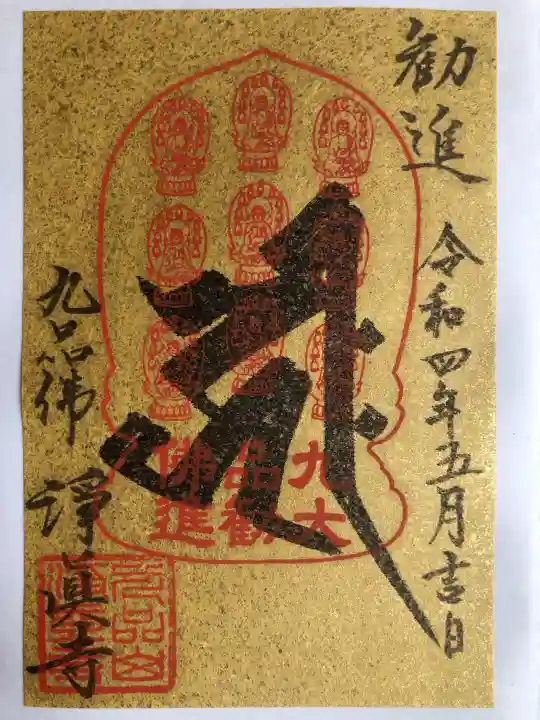 勧進 令和四年五月吉日
九品佛
大勧進
九品佛 淨眞寺